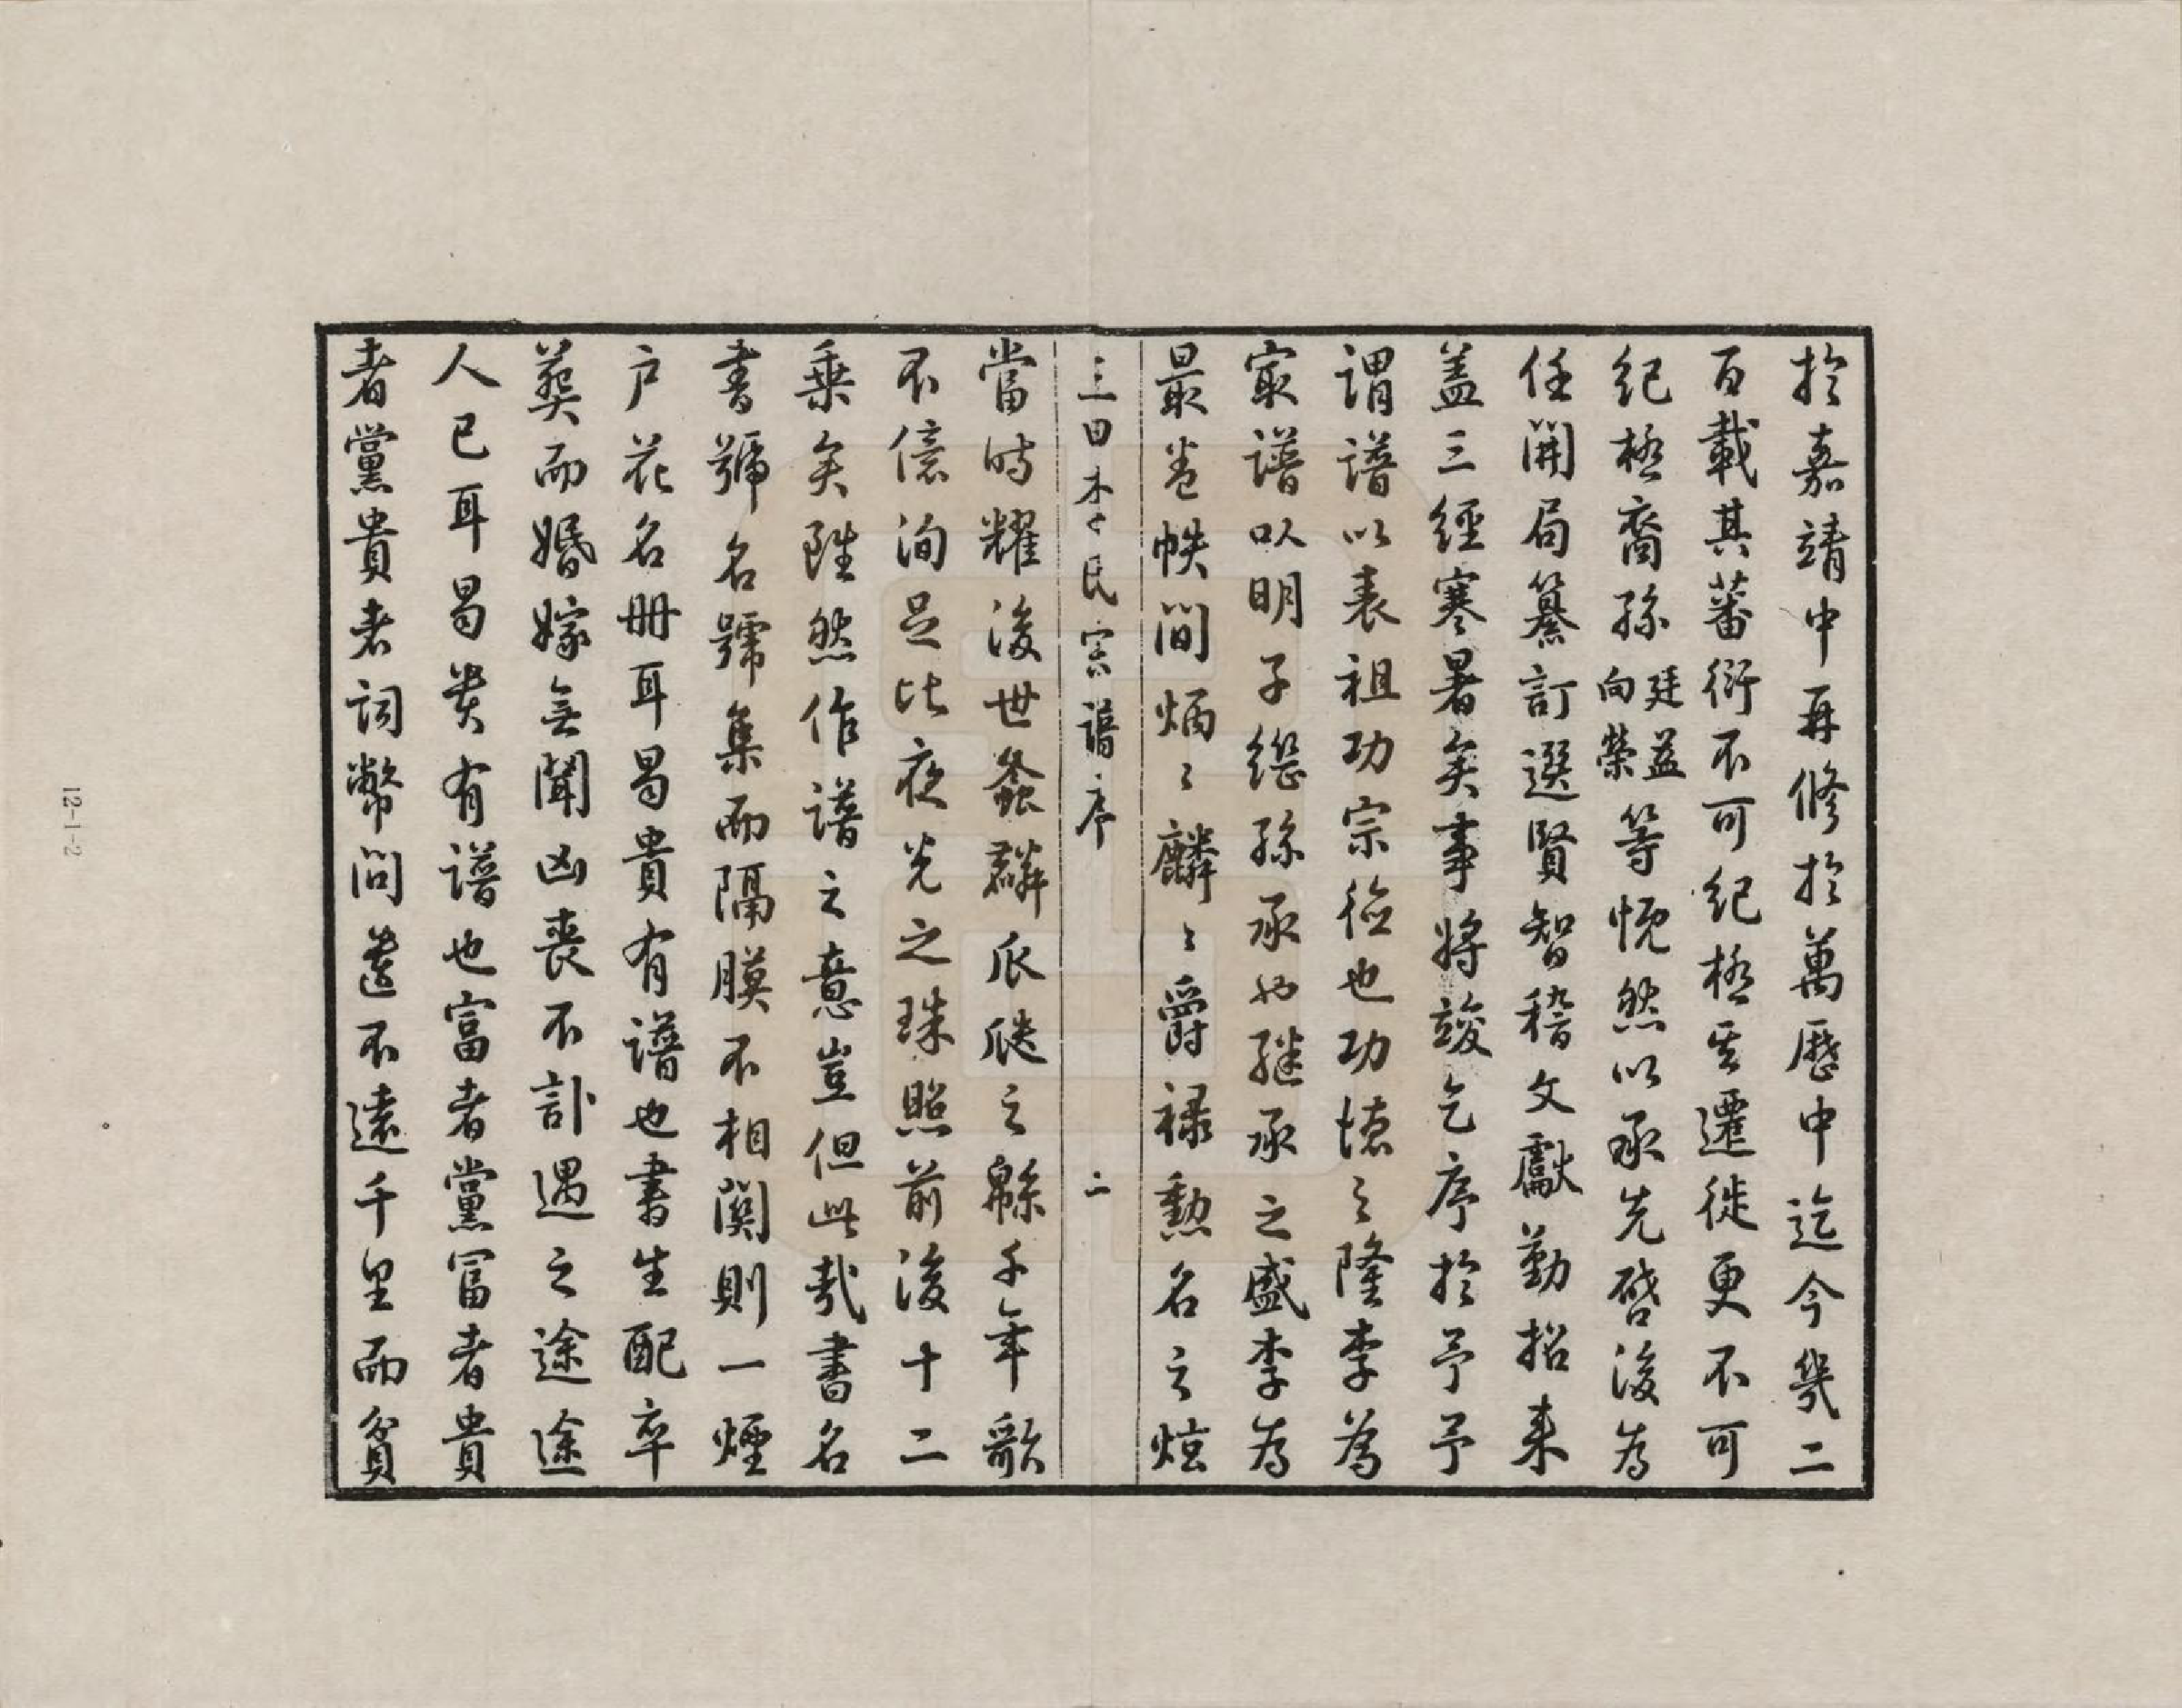 於嘉靖中再修於萬歷中迄今幾二
百載其蕃衍不可紀極其遷徙更不可
紀極裔孫廷益向榮等慨然以承先啓後為
任開局纂訂選賢智稽文獻勤招来
盖三經寒暑矣事將竣乞序於予予
謂譜以表祖功宗德也功德之隆李為
最譜以明子繼孫承也繼承之盛李為
最卷帙間炳炳麟麟爵祿勳名之炫
三田李氏宗譜序 二
當時耀後世螽麟瓜瓞之緜千年歌
不億洵足比夜光之珠照前後十二
乗矣雖然作譜之意豈但此哉書名
書號名號集而隔膜不相関則一煙
户花名册耳曷貴有譜也書生配卒
葬而婚嫁無聞凶喪不訃遇之途途
人已耳曷貴有譜也富者黨富者貴
者黨貴者詞幣問遺不遠千里而貧
12-1-2